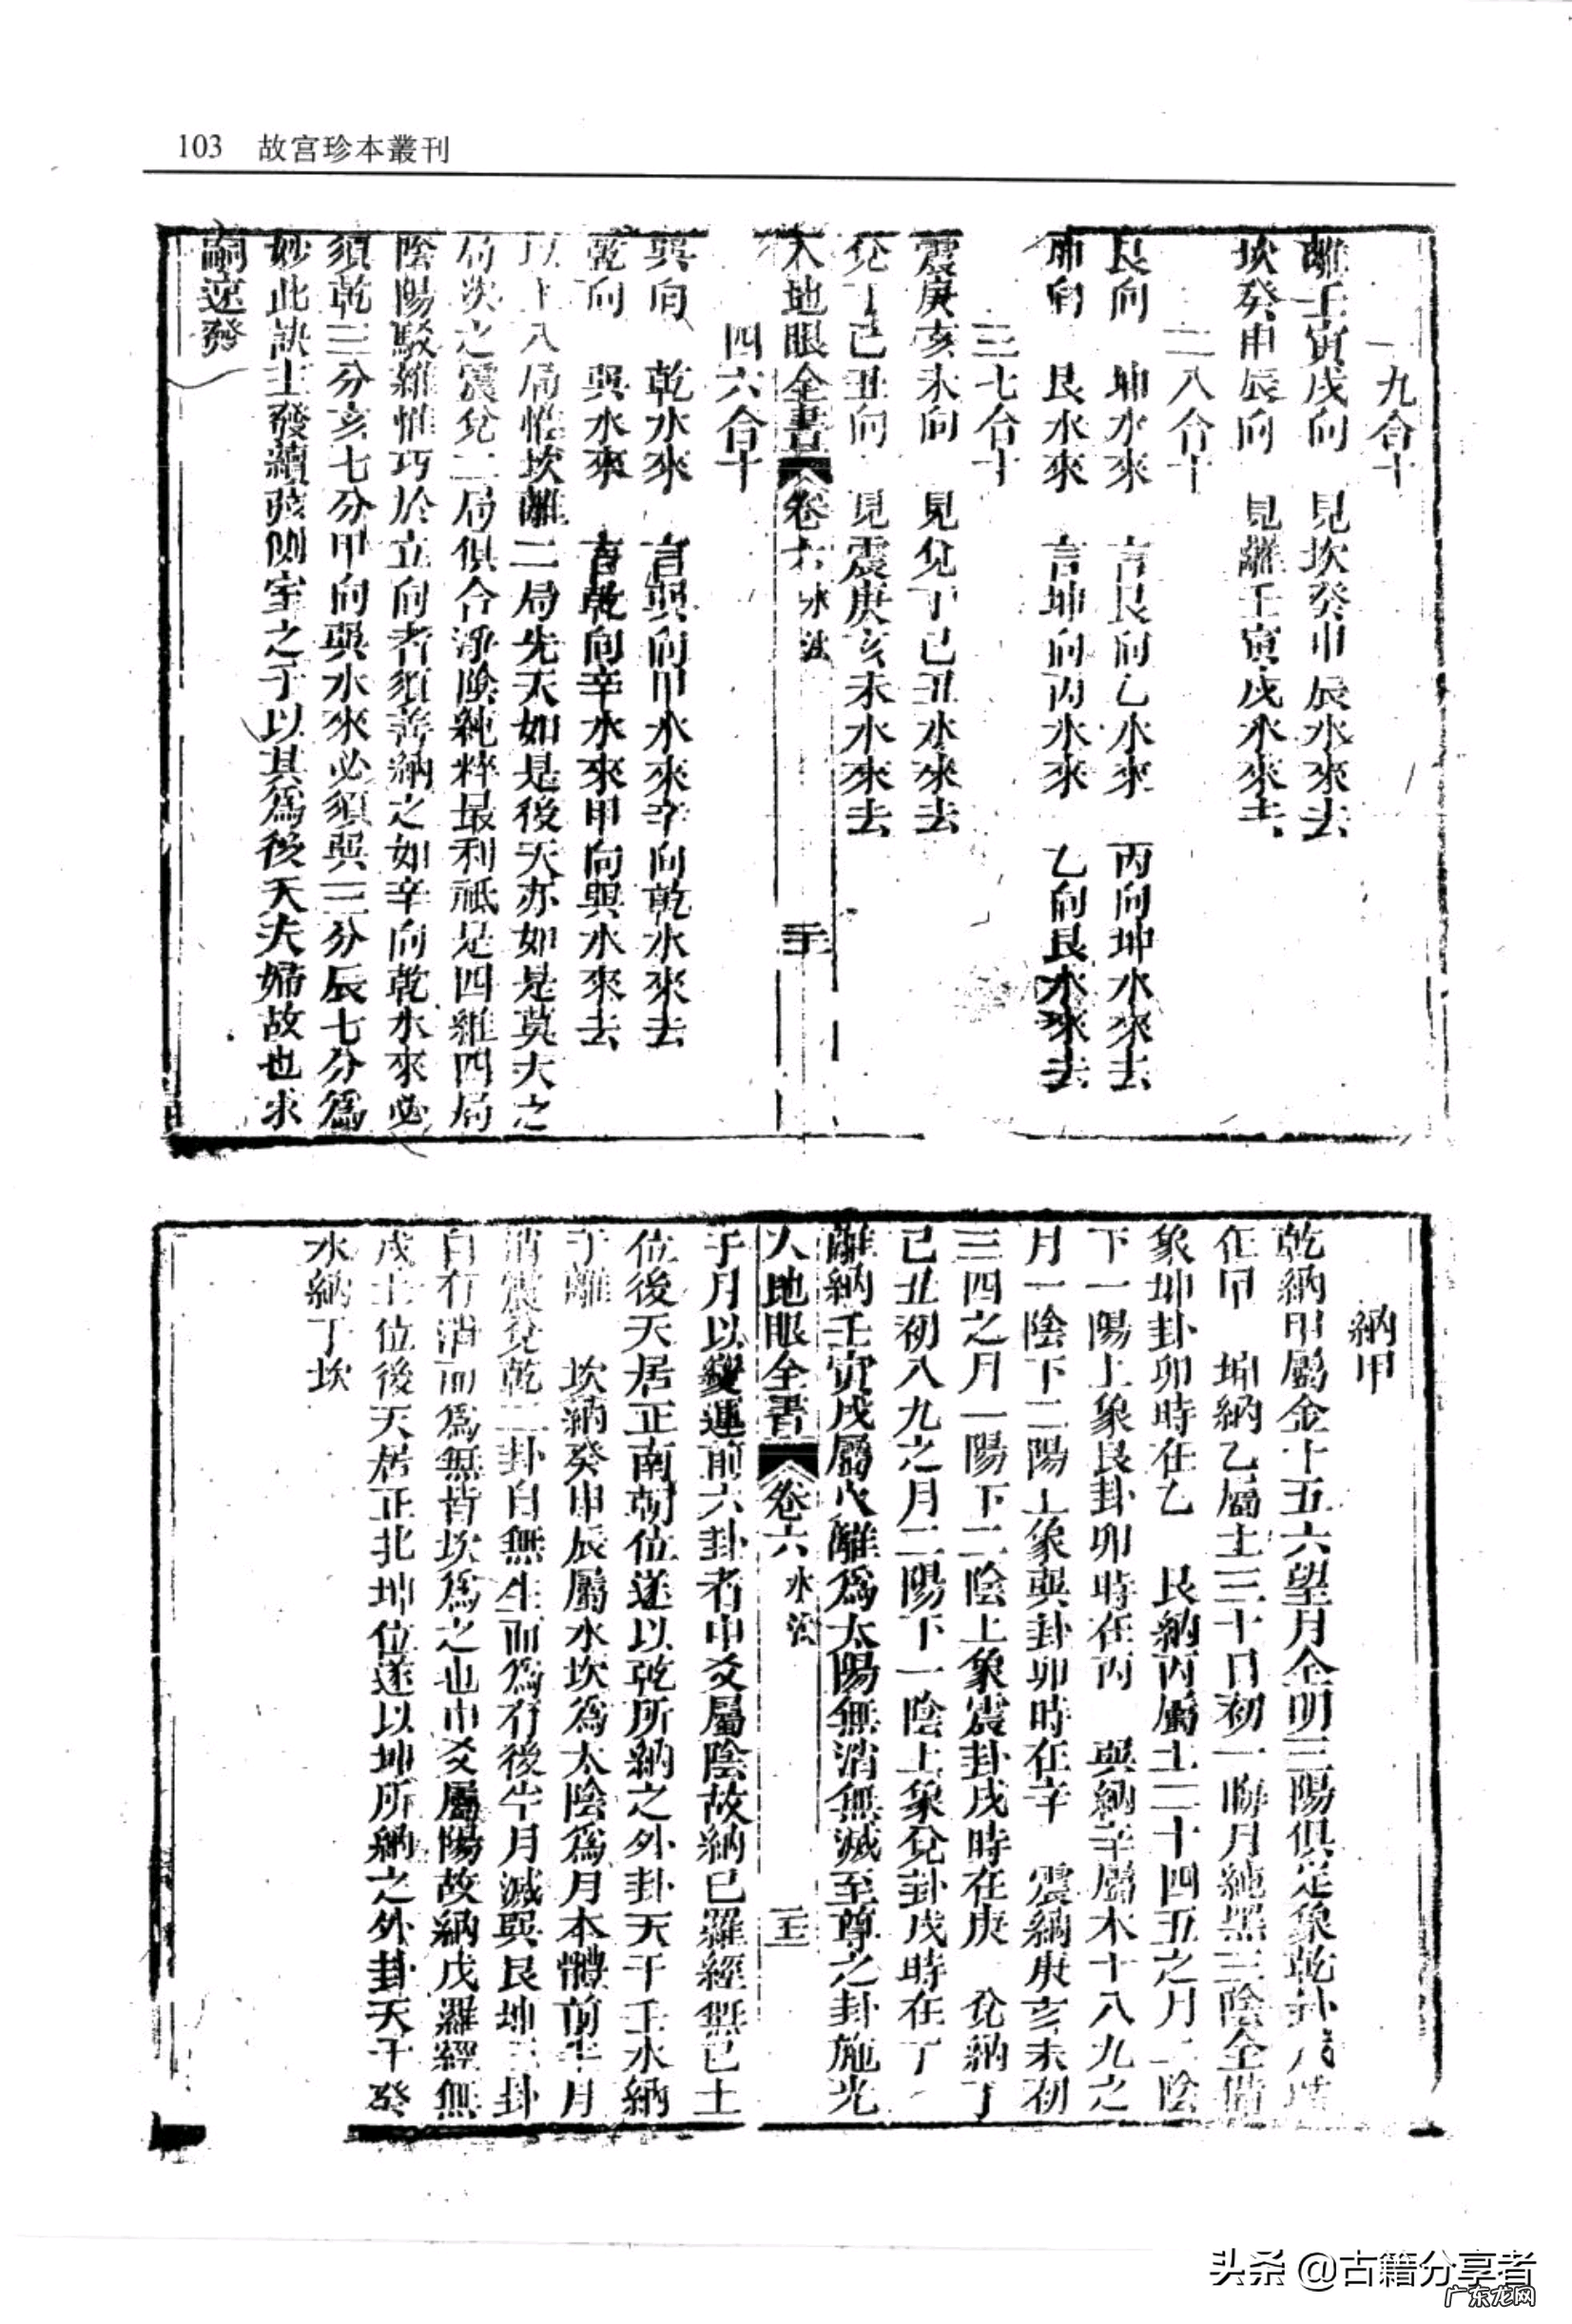 103 故宫珍本叢刊
一九合十
離壬寅戌向 見坎癸申辰水來去
坎癸申辰向 見離壬寅戌水來去
二八合十
艮向 坤水來 言艮向乙水來 丙向坤水來去
坤向 艮水來 言坤向丙水來 乙向艮水來去
三七合十
震庚亥未向 見兌丁巳丑水來去
兌丁巳丑向 見震庚亥未水來去
人地眼全書 卷六 水法 二十
四六合十
巽向 乾水來 言巽向甲水來辛向乾水來去
乾向 巽水來 言乾向辛水來甲向巽水來去
以上八局惟坎離二局先天如是後天亦如是莫大之
局次之震兌二局俱合淨陰純粹最利祗是四維四局
陰陽駁雜惟巧於立向者須善納之如辛向乾水來必
須乾三分亥七分甲向巽水來必須巽三分辰七分爲
妙此訣主發續弦側室之子以其爲後天夫婦故也求
嗣速發
納甲
乾納甲屬金十五六望月全明三陽俱足象乾卦戌時
在甲 坤納乙屬土三十日初一晦月純黑三陰全備
象坤卦卯時在乙 艮納丙屬土二十四五之月二陰
下一陽上象艮卦卯時在丙 巽納辛屬木十八九之
月一陰下二陽上象巽卦卯時在辛 震納庚亥未初
三四之月一陽下二陰上象震卦戌時在庚 兌納丁
巳丑初八九之月二陽下一陰上象兌卦戌時在丁
離納壬寅戌屬火離爲太陽無消無滅至尊之卦施光
人地眼全書 卷六 水法
于月以變運前六卦者中爻屬陰故納己羅經無己土
位後天居正南朝位遂以乾所納之外卦天干壬水納
于離 坎納癸申辰屬水坎爲太陰爲月本體前半月
消震兌乾三卦自無生而爲有後半月滅巽艮坤三卦
自有消而爲無皆坎爲之也中爻屬陽故納戊羅經無
戊土位後天居正北坤位遂以坤所納之外卦天干癸
水納于坎
头条 @古籍分享者
广东龙网